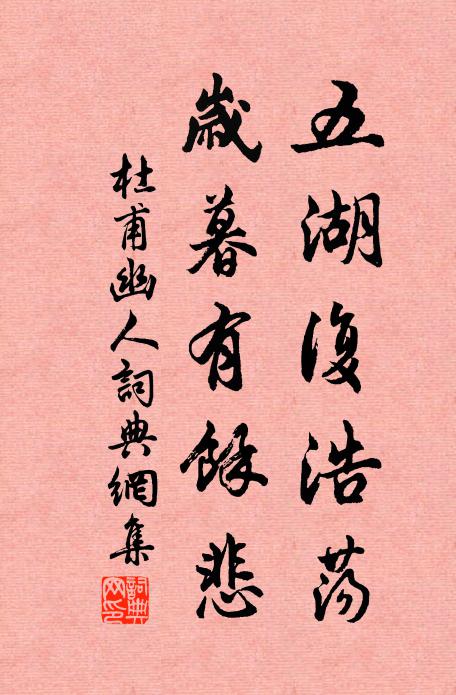 五湖復浩荡
歲暮有餘悲
杜甫幽人詞典網集
詞典网印